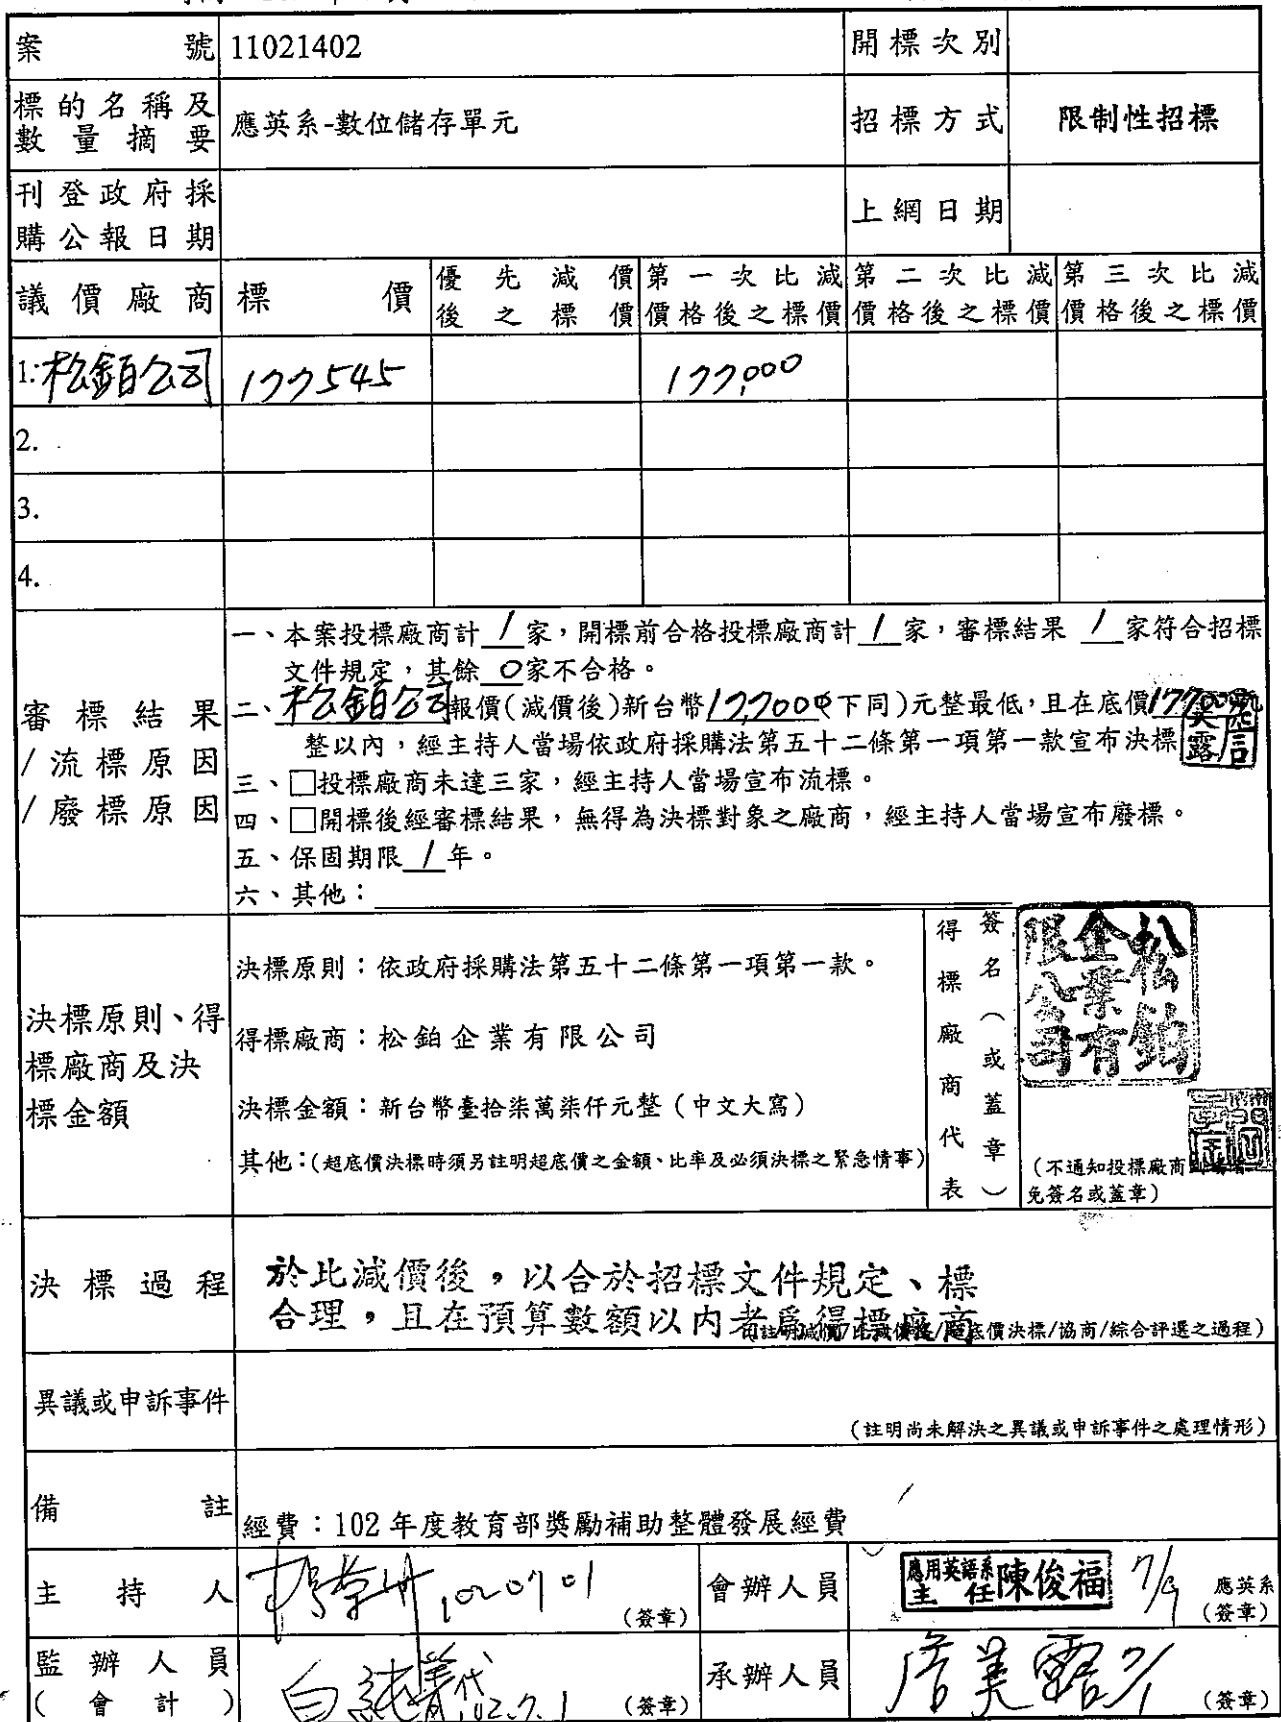 案號 11021402 開標次別
標的名稱及數量摘要 應英系-數位儲存單元 招標方式 限制性招標
刊登政府採購公報日期 上網日期
議價廠商 標價 優先減價後之標價 第一次比減價格後之標價 第二次比減價格後之標價 第三次比減價格後之標價
1.松鉑公司 177545 177,000
2.
3.
4.
審標結果/流標原因/廢標原因
一、本案投標廠商計 1 家，開標前合格投標廠商計 1 家，審標結果 1 家符合招標
文件規定，其餘 0 家不合格。
二、松鉑公司報價(減價後)新台幣177000(下同)元整最低，且在底價177000
整以內，經主持人當場依政府採購法第五十二條第一項第一款宣布決標
三、□投標廠商未達三家，經主持人當場宣布流標。
四、□開標後經審標結果，無得為決標對象之廠商，經主持人當場宣布廢標。
五、保固期限 1 年。
六、其他：
決標原則、得標廠商及決標金額
決標原則：依政府採購法第五十二條第一項第一款。
得標廠商：松鉑企業有限公司
決標金額：新台幣臺拾柒萬柒仟元整（中文大寫）
其他：(超底價決標時須另註明超底價之金額、比率及必須決標之緊急情事)
得標廠商代表
簽名（或蓋章）
松鉑企業有限公司
(不通知投標廠商
免簽名或蓋章)
決標過程
於比減價後，以合於招標文件規定、標
合理，且在預算數額以內者為得標廠商
底價決標/協商/綜合評選之過程)
異議或申訴事件
(註明尚未解決之異議或申訴事件之處理情形)
備註
經費：102年度教育部獎勵補助整體發展經費
主持人 1020701 (簽章) 會辦人員 應用英語系主任陳俊福 7/9 應英系(簽章)
監辦人員(會計) 白純菁代 102.7.1 (簽章) 承辦人員 詹美露 7/1 (簽章)